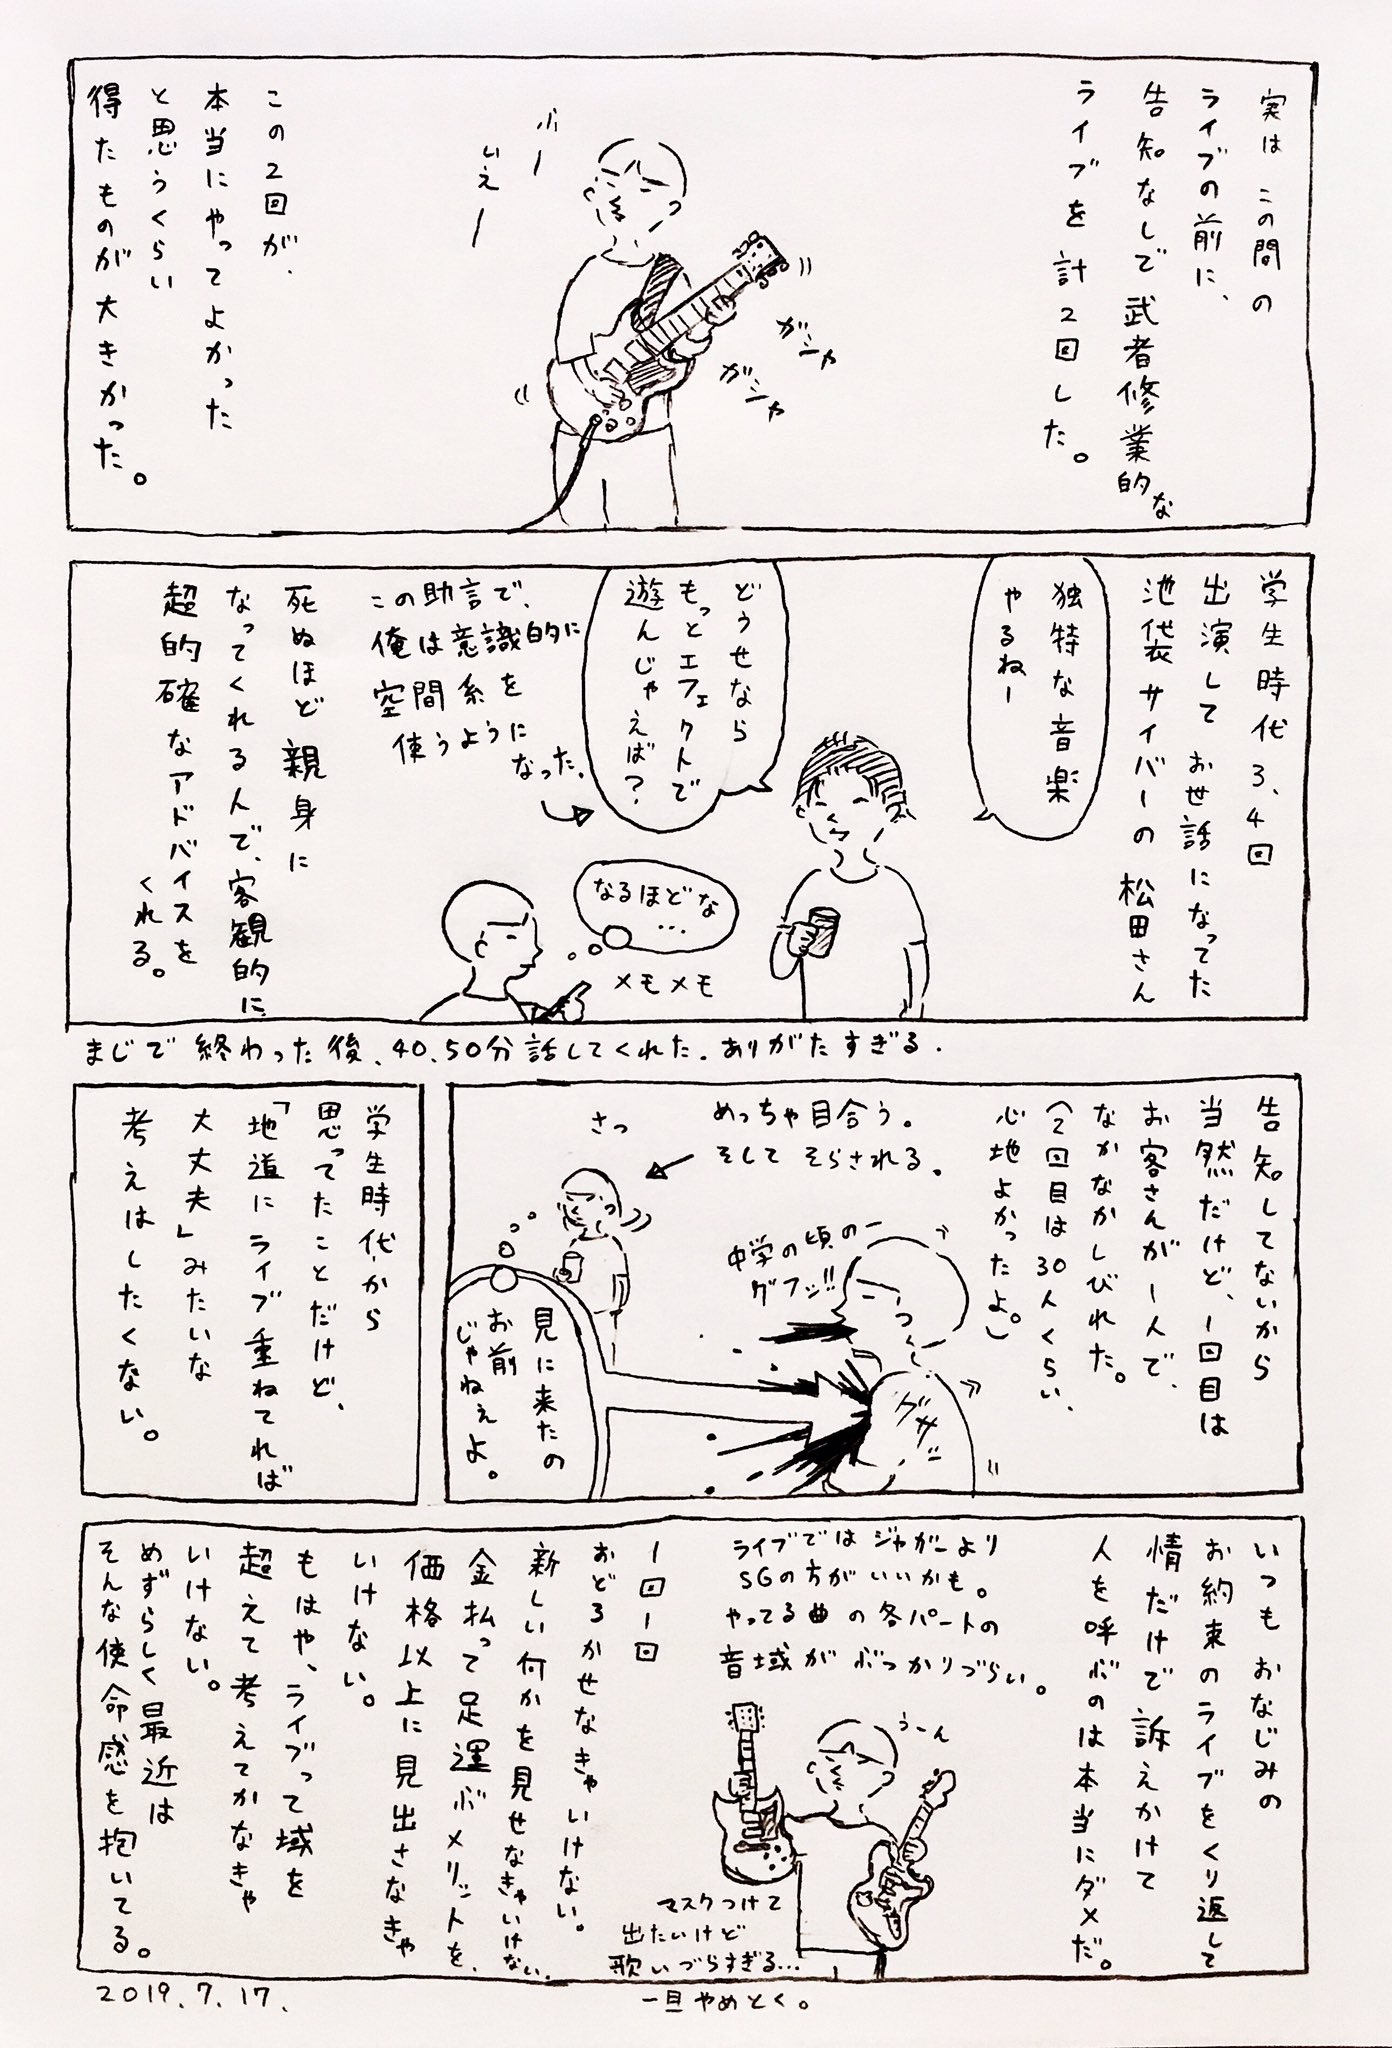 実はこの間の
ライブの前に、
告知なしで武者修業的な
ライブを計2回した。
ふー
いえー
ガシャ
ガシャ
この2回が、
本当にやってよかった
と思うくらい
得たものが大きかった。
学生時代3、4回
出演してお世話になってた
池袋サイバーの松田さん
独特な音楽
やるねー
どうせなら
もっとエフェクトで
遊んじゃえば？
この助言で、
俺は意識的に
空間系を
使うように
なった。
なるほどな
…
メモメモ
死ぬほど親身に
なってくれる人で、客観的に
超的確なアドバイスを
くれる。
まじで終わった後、40、50分話してくれた。ありがたすぎる。
告知してないから
当然だけど、1回目は
お客さんが一人で、
なかなかしびれた。
(2回目は30人くらい、
心地よかったよ。)
めっちゃ目合う。
そして そらされる。
さっ
中学の頃のー
グフッ!!
グサッ
見に来たの
お前
じゃねぇよ。
学生時代から
思ってたことだけど、
「地道にライブ重ねてれば
大丈夫」みたいな
考えはしたくない。
いつもおなじみの
お約束のライブをくり返して
情だけで訴えかけて
人を呼ぶのは本当にダメだ。
ライブではジャガーより
SGの方がいいかも。
やってる曲の各パートの
音域がぶつかりづらい。
うーん
マスクつけて
出たいけど
歌いづらすぎる…
一旦やめとく。
一回一回
おどろかせなきゃいけない。
新しい何かを見せなきゃいけない、
金払って足運ぶメリットを、
価格以上に見出さなきゃ
いけない。
もはや、ライブって域を
超えて考えてかなきゃ
いけない。
めずらしく最近は
そんな使命感を抱いてる。
2019.7.17.